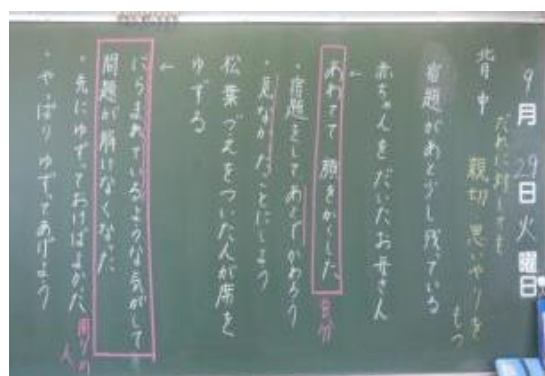 9月29日火曜日
だれに対しても
親切 思いやりを
もつ
背中
宿題があと少し残っている
赤ちゃんをだいたお母さん
←
あわてて顔をかくした
自分
・宿題をしてあとでかわろう
・見なかったことにしよう
松葉づえをついた人が席を
ゆずる
←
にらまれているような気がして
問題が解けなくなった
周りの
人
・先にゆずっておけばよかった
・やっぱりゆずってあげよう